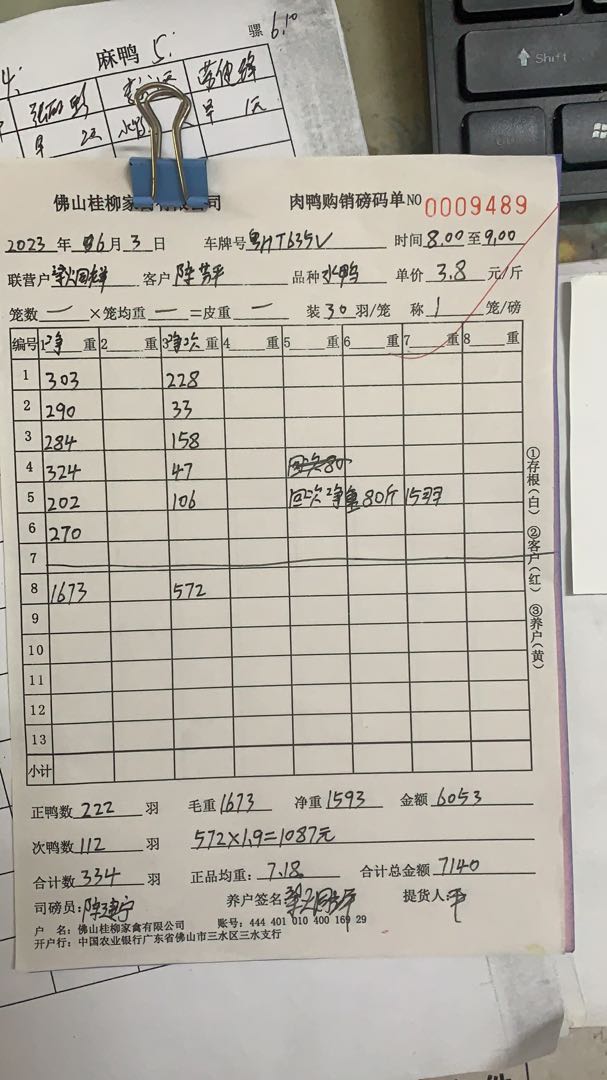 麻鸭 5.
骡 6.10
4.
早 2次
早 1元
Shift
佛山桂柳家 公司 肉鸭购销磅码单 NO 0009489
2023 年 6 月 3 日 车牌号 粤HT635V 时间 8.00 至 9.00
联营户 客户 品种 水鸭 单价 3.8 元/斤
笼数 一 ×笼均重 一 =皮重 一 装 30 羽/笼 称 1 笼/磅
编号 1净 重 2 重 3净次 重 4 重 5 重 6 重 7 重 8 重
1 303 228
2 290 33
3 284 158
4 324 47 回次80
5 202 106 回次净重80斤 15羽
6 270
7
8 1673 572
9
10
11
12
13
小计
①存根(白) ②客户(红) ③养户(黄)
正鸭数 222 羽 毛重 1673 净重 1593 金额 6053
次鸭数 112 羽 572×1.9=1087元
合计数 334 羽 正品均重: 7.18 合计总金额 7140
司磅员: 养户签名: 提货人: 平
户 名: 佛山桂柳家禽有限公司 账号: 444 401 010 400 169 29
开户行: 中国农业银行广东省佛山市三水区三水支行